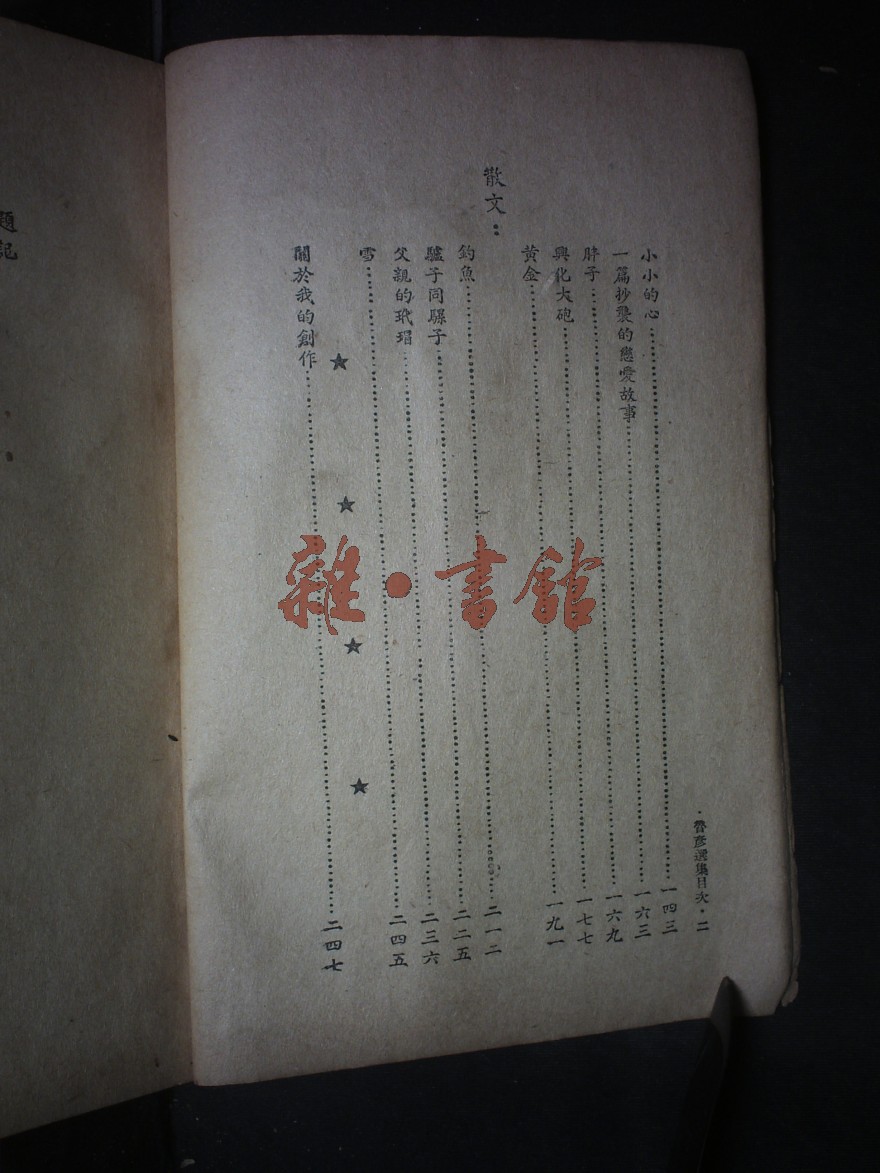 ·魯彥選集目次·二
小小的心……一四三
一篇抄襲的戀愛故事……一六三
胖子……一六九
興化大砲……一七七
黃金……一九一
散文：
釣魚……二一二
驢子同騾子……二二五
父親的玳瑁……二三六
雪……二四五
★ ★ ★ ★
關於我的創作……二四七
題記
雜·書館